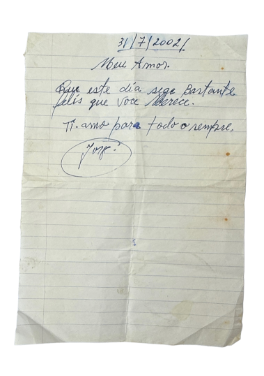 31/7/2002/
Meu Amor.
Que este dia seja Bastante
felis que voce Merece.
Ti. amo para todo o sempre.
Jorge